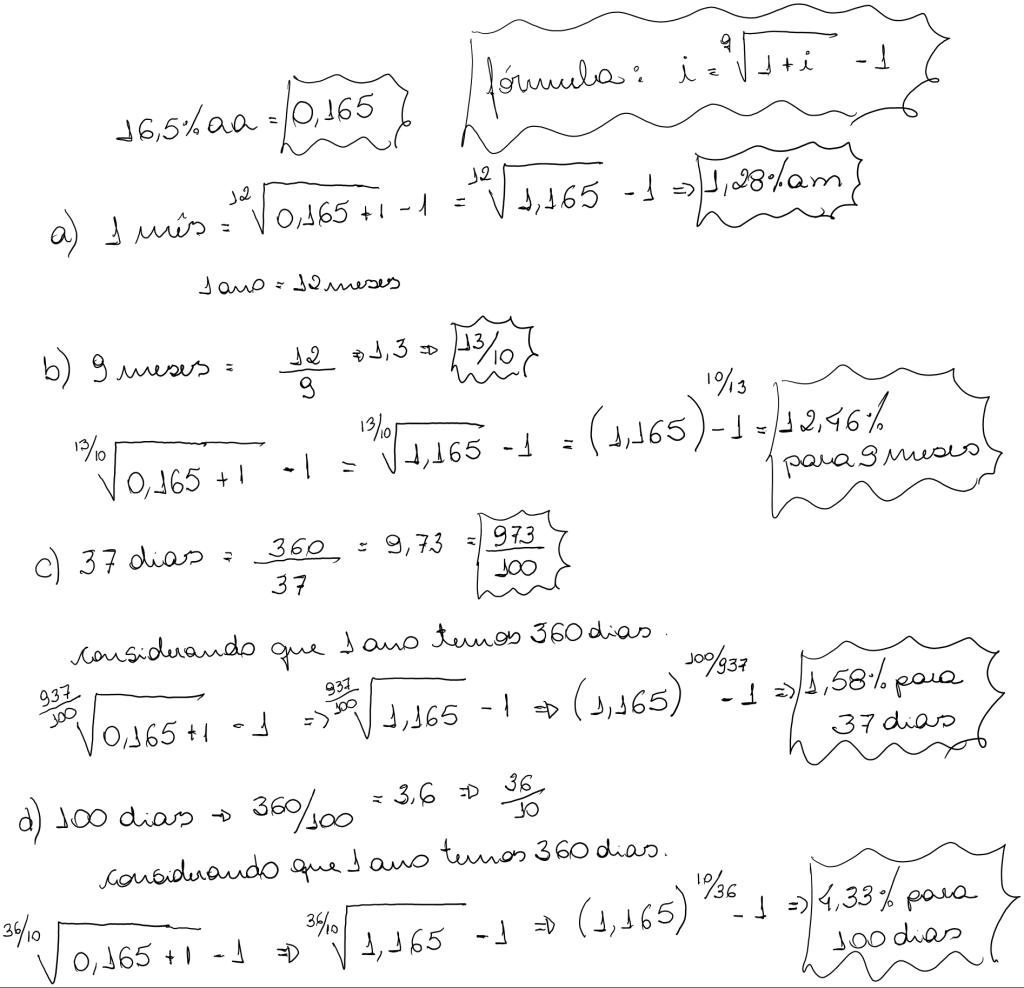 fórmula: i = ⁹√(1+i) - 1
16,5% aa = 0,165
a) 1 mês = ¹²√(0,165+1) - 1 = ¹²√(1,165) - 1 ⇒ 1,28% am
1 ano = 12 meses
b) 9 meses = 12/9 ⇒ 1,3 ⇒ 13/10
13/10√(0,165+1) - 1 = 13/10√(1,165) - 1 = (1,165)^10/13 - 1 = 12,46%
para 9 meses
c) 37 dias = 360/37 = 9,73 = 973/100
considerando que 1 ano temos 360 dias.
937/100√(0,165+1) - 1 => 937/100√(1,165) - 1 ⇒ (1,165)^100/937 - 1 => 1,58% para
37 dias
d) 100 dias → 360/100 = 3,6 ⇒ 36/10
considerando que 1 ano temos 360 dias.
36/10√(0,165+1) - 1 ⇒ 36/10√(1,165) - 1 ⇒ (1,165)^10/36 - 1 => 4,33% para
100 dias